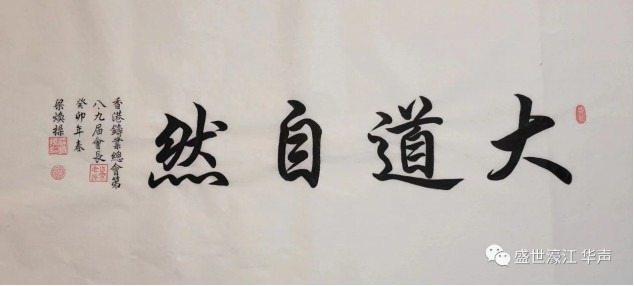 大道自然
香港鑄業總會第
八、九屆會長
癸卯年春
梁煥操
盛世濠江 华声